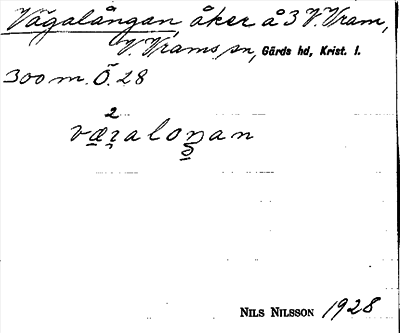 Vägalångan, åker å 3 V. Vram,
V. Vrams sn, Gärds hd, Krist. l.
300 m. Ö. 28
2
væꭋaloŋan
NILS NILSSON 1928